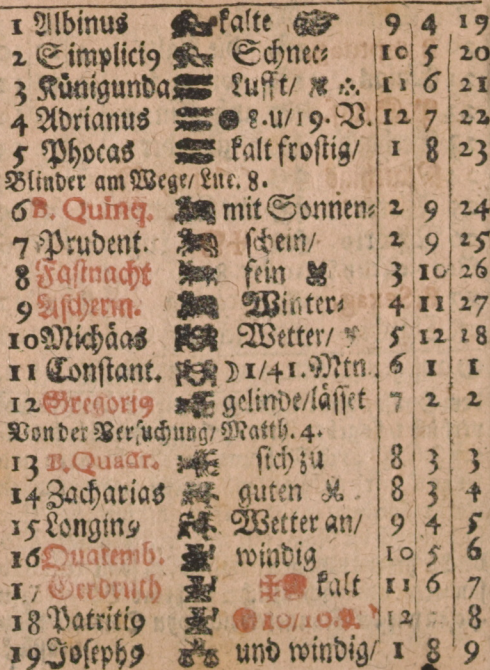 1 Albinus kalte 9 4 19
2 Simplici9 Schnee⸗ 10 5 20
3 Künigunda Lufft/ 11 6 21
4 Adrianus 8.u/19. V. 12 7 22
5 Phocas kalt frostig/ 1 8 23
Blinder am Wege/ Luc. 8.
6 B. Quinq. mit Sonnen⸗ 2 9 24
7 Prudent. schein/ 2 9 25
8 Fastnacht fein 3 10 26
9 Ascherm. Winter⸗ 4 11 27
10 Michäas Wetter/ 5 12 28
11 Constant. ☽ 1/41. Mtn. 6 1 1
12 Gregori9 gelinde/lässet 7 2 2
Von der Versuchung/ Matth. 4.
13 B. Quadr. sich zu 8 3 3
14 Zacharias guten 8 3 4
15 Longin9 Wetter an/ 9 4 5
16 Quatemb. windig 10 5 6
17 Gerdruth kalt 11 6 7
18 Patriti9 10/10. 12 8
19 Joseph9 und windig/ 1 8 9